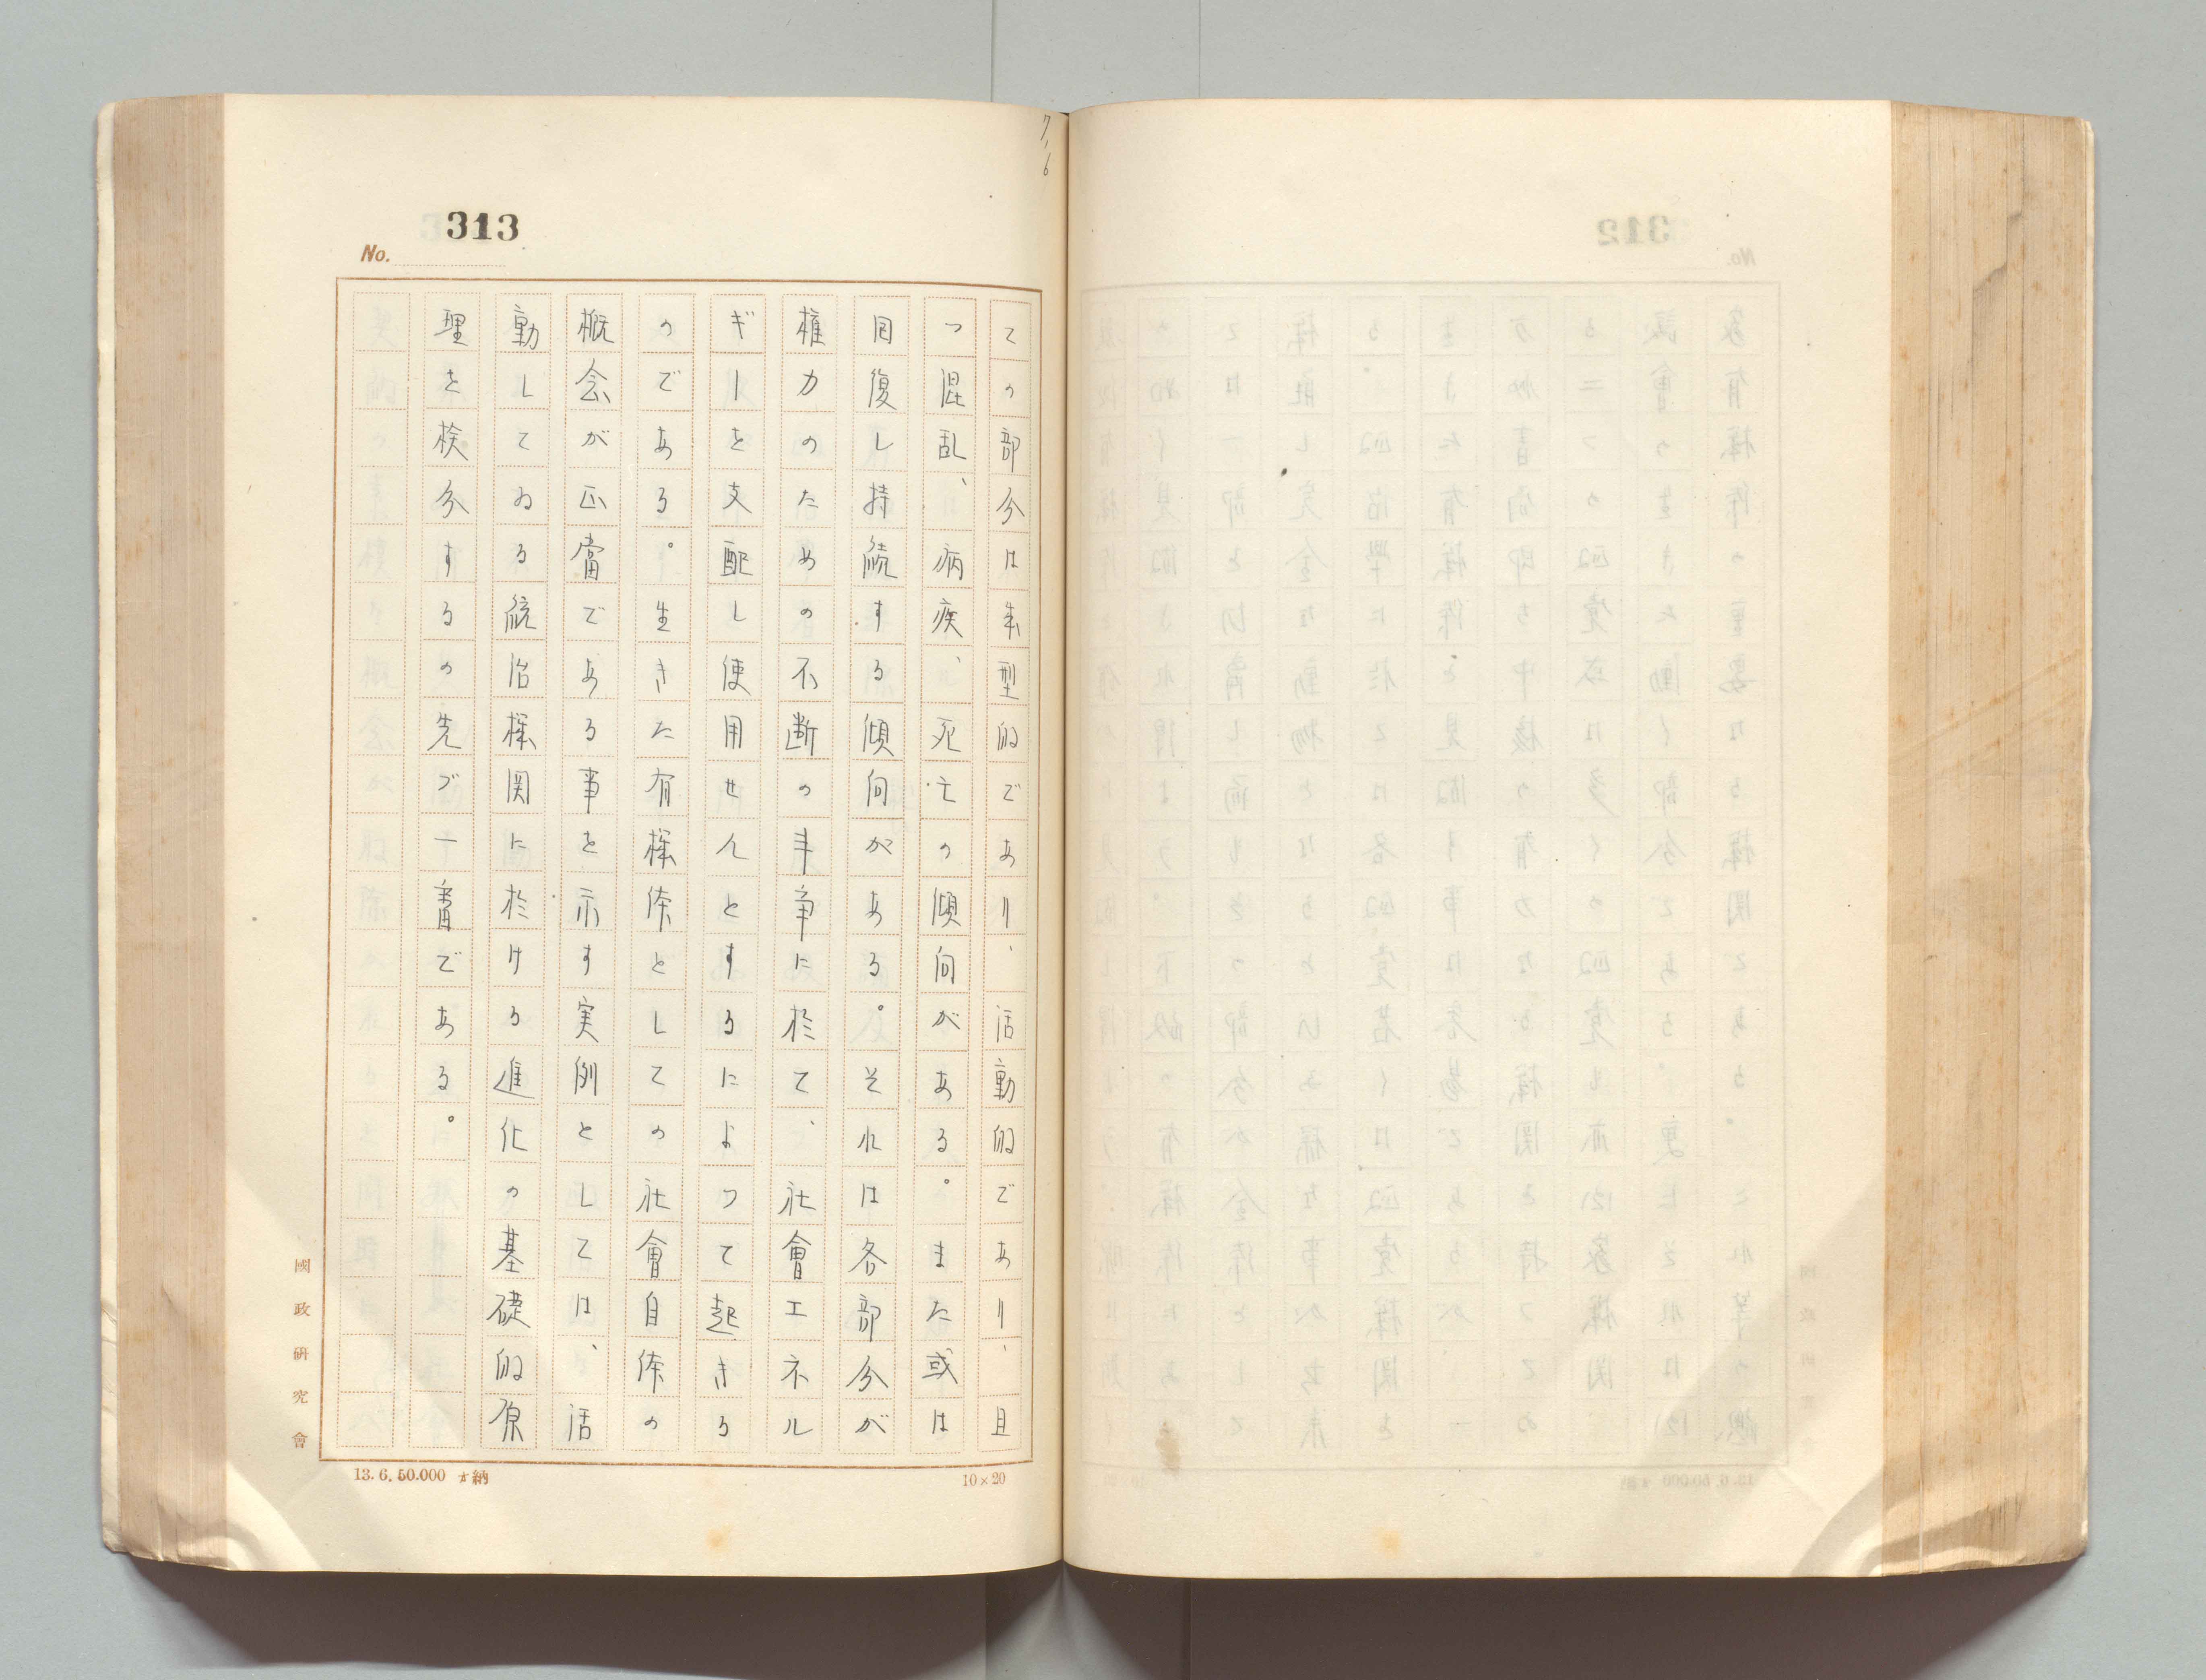 7,6
313
No.
ての部分は型的であり、活動的であり、且
つ混乱、病疾、死亡の傾向がある。また或は
回復し持続する傾向がある。それは各部分が
権力のための不断の斗争に於て、社會エネル
ギーを支配し使用せんとするによつて起きる
のである。生きた有機体としての社會自体の
概念が正當である事を示す実例としては、活
動してゐる統治機関に於ける進化の基礎的原
理を検分するの先づ一番である。
國政研究會
13.6.50.000 納
10×20